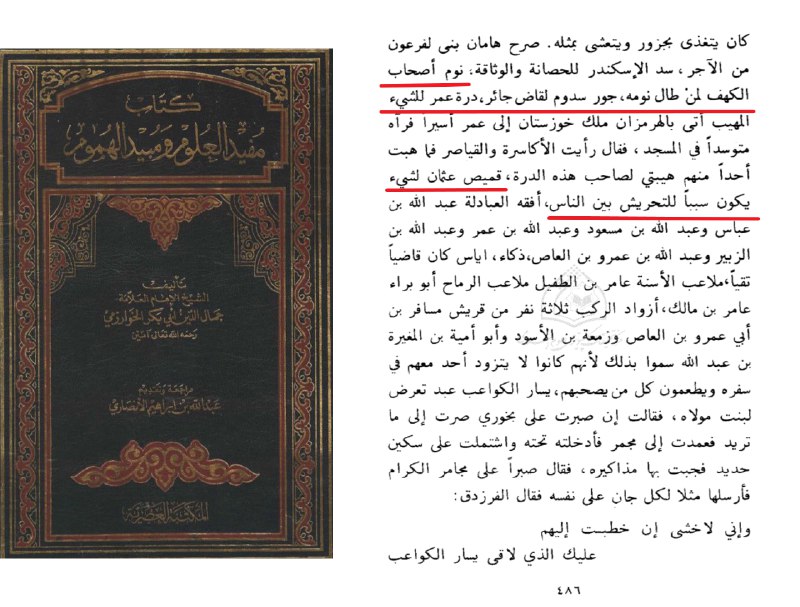 كتاب
مفيد العلوم ومبيد الهموم
تأليف
الشيخ الإمام العلامة
جمال الدين أبي بكر الخوارزمي
رحمه الله تعالى آمين
مراجعة وتقديم
عبد الله بن إبراهيم الأنصاري
المكتبة العصرية
كان يتغذى بجزور ويتعشى بمثله. صرح هامان بنى لفرعون
من الآجر، سد الإسكندر للحصانة والوثاقة، نوم أصحاب
الكهف لمنْ طال نومه، جور سدوم لقاض جائر، درة عمر للشيء
المهيب أتى بالهرمزان ملك خوزستان إلى عمر أسيرا فرآه
متوسداً في المسجد، فقال رأيت الأكاسرة والقياصر فما هبت
أحداً منهم هيبتي لصاحب هذه الدرة، قميص عثمان لشيء
يكون سبباً للتحريش بين الناس، أفقه العبادلة عبد الله بن
عباس وعبد الله بن مسعود وعبد الله بن عمر وعبد الله بن
الزبير وعبد الله بن عمرو بن العاص، ذكاء، اياس كان قاضياً
تقياً، ملاعب الأسنة عامر بن الطفيل ملاعب الرماح أبو براء
عامر بن مالك، أزواد الركب ثلاثة نفر من قريش مسافر بن
أبي عمرو بن العاص وزمعة بن الأسود وأبو أمية بن المغيرة
بن عبد الله سموا بذلك لأنهم كانوا لا يتزود أحد معهم في
سفره ويطعمون كل من يصحبهم، يسار الكواعب عبد تعرض
لبنت مولاه، فقالت إن صبرت على بخوري صرت إلى ما
تريد فعمدت إلى مجمر فأدخلته تحته واشتملت على سكين
حديد فجبت بها مذاكيره، فقال صبراً على مجامر الكرام
فأرسلها مثلا لكل جانٍ على نفسه فقال الفرزدق:
وإني لاخشى إن خطبت إليهم
عليك الذي لاقى يسار الكواعب
٤٨٦